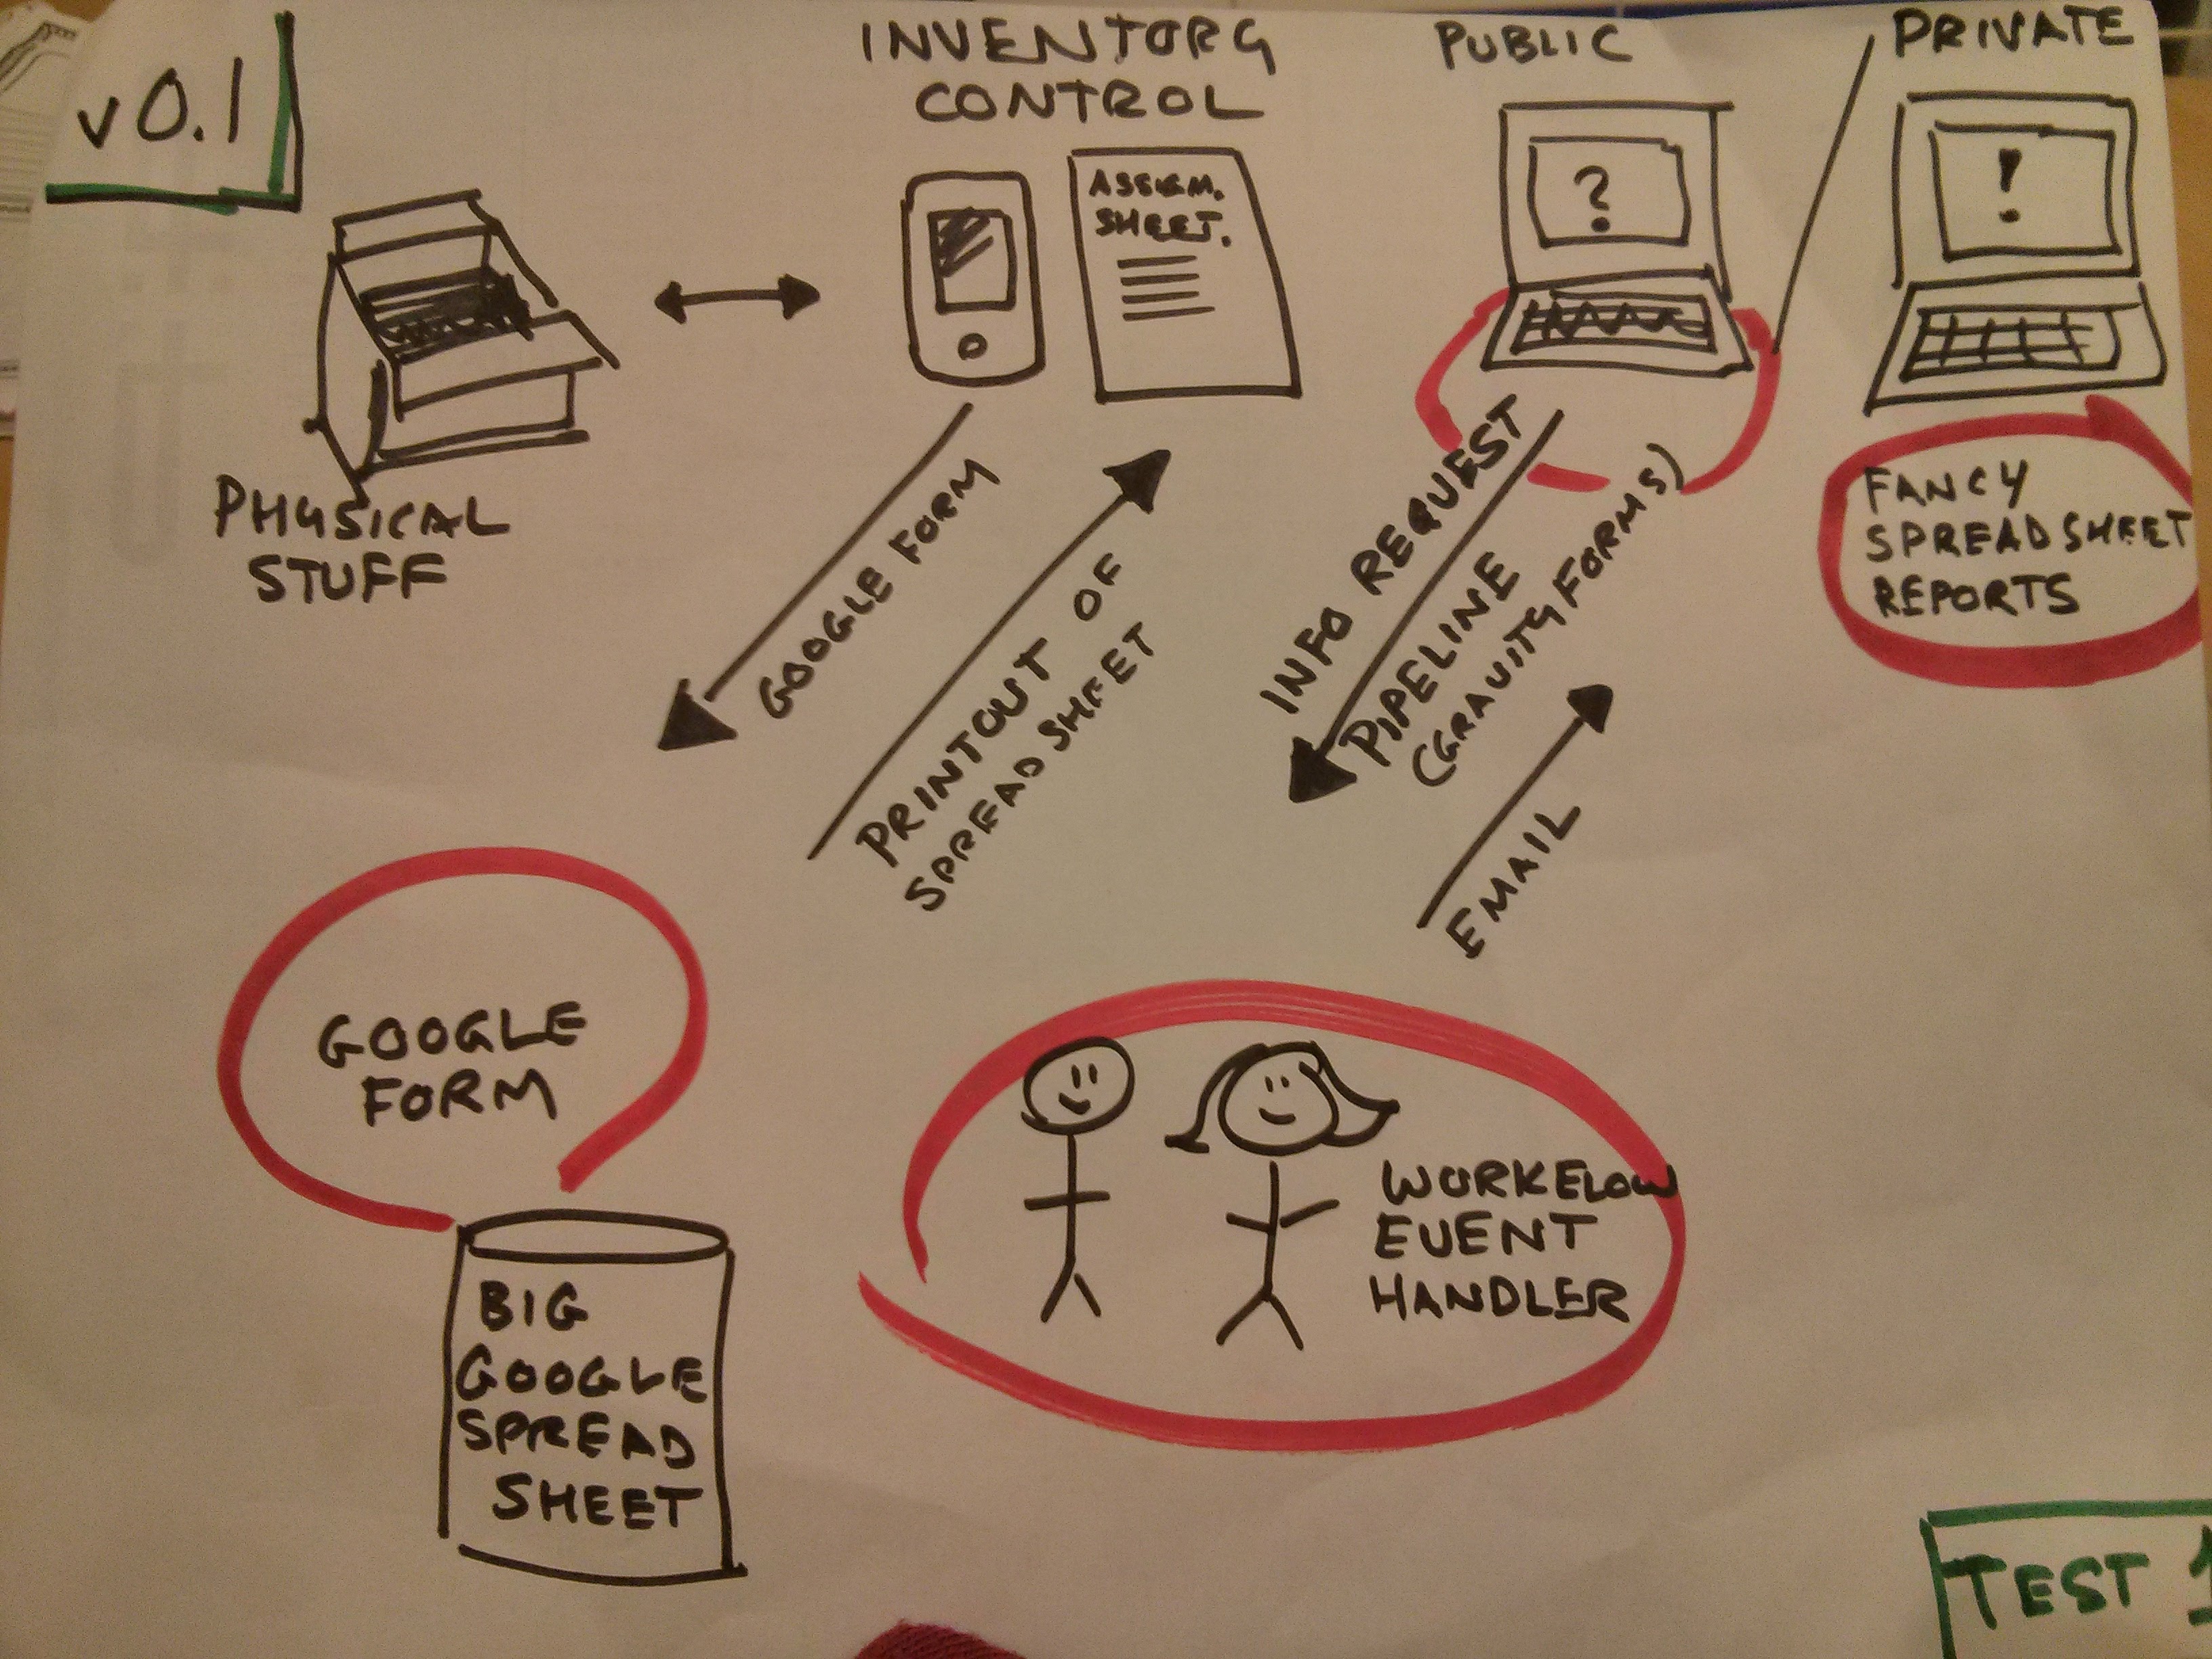 v0.1
INVENTORY
CONTROL
PUBLIC
PRIVATE
ASSIGM.
SHEET.
?
!
PHYSICAL
STUFF
GOOGLE FORM
PRINTOUT OF
SPREADSHEET
INFO REQUEST
PIPELINE
(GRAVITY FORMS)
EMAIL
FANCY
SPREADSHEET
REPORTS
GOOGLE
FORM
BIG
GOOGLE
SPREAD
SHEET
WORKFLOW
EVENT
HANDLER
TEST 1